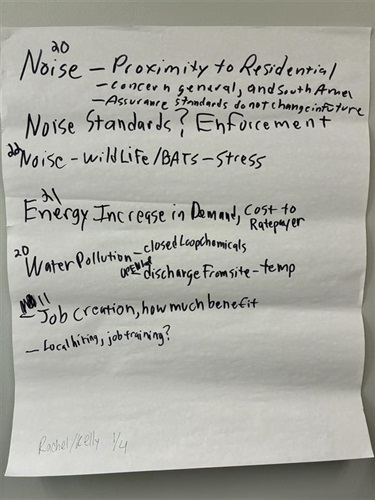 20
Noise - Proximity to Residential
- concern general, and South Amel
- Assurance standards do not change in future
Noise Standards? Enforcement
22
Noise - WildLife/BATs - Stress
21
Energy Increase in Demand, Cost to Ratepayer
20
Water Pollution - closed Loop chemicals
discharge From site - temp
11
- Job Creation, how much benefit
- Local hiring, job training?
Rachel/Kelly 1/4